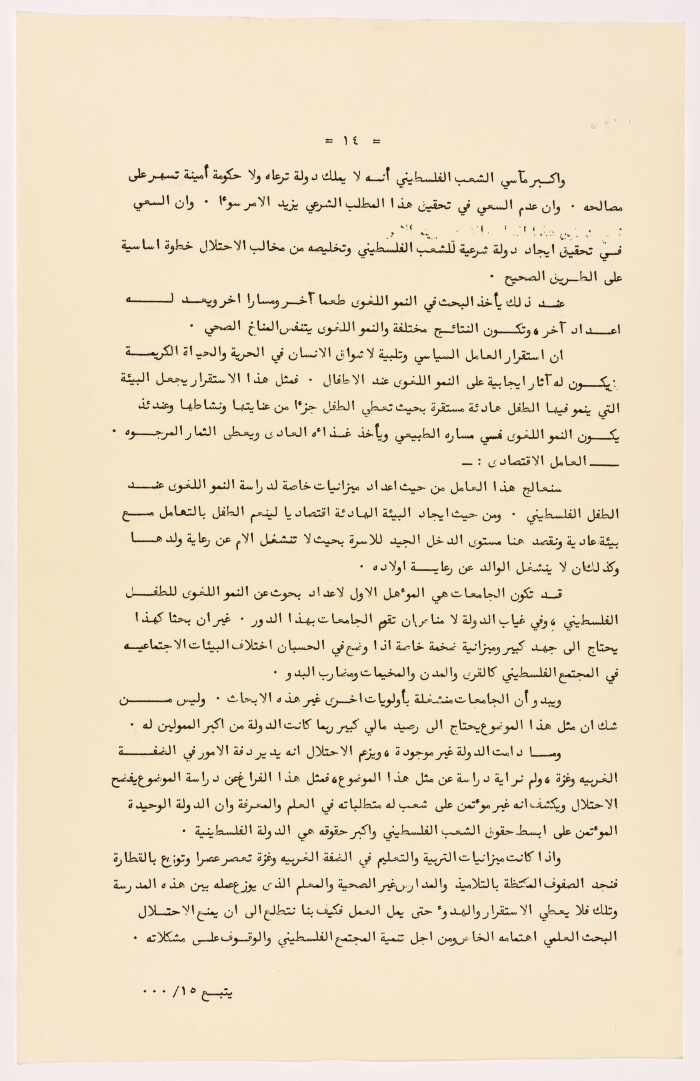 = ١٤ =
واكـبر مآسي الشعب الفلسطيني أنـه لا يملك دولة ترعاه ولا حكومة أمينة تسهر على
مصالحه ٠ وان عدم السعي في تحقيق هذا المطلب الشرعي يزيد الامر سوءا ٠ وان السعي
فـي تحقيق ايجاد دولة شرعية للشعب الفلسطيني وتخليصه من مخالب الاحتلال خطوة اساسية
على الطـريق الصحيح ٠
عنـد ذلك يأخذ البحث في النمو اللغوى طعما آخـر ومسارا اخر ويعد لـه
اعـداد آخر ، وتكـون النتائج مختلفة والنمو اللغوى يتنفس المناخ الصحي ٠
ان استقرار العامل السياسي وتلبية لاشواق الانسان في الحرية والحياة الكريمـة
يكـون له آثار ايجابية على النمو اللغوى عند الاطفال ٠ فمثل هذا الاستقرار يجعل البيئة
التي ينمو فيها الطفل هادئة مستقرة بحيث تعطي الطفل جزءا من عنايتها ونشاطها وعندئذ
يكـون النمو اللغوى فـي مساره الطبيعي ويأخذ غـذاءه العادى ويعطى الثمار المرجـوه ٠
ـــ العامل الاقتصادى : ــ
سنعالج هذا العامل من حيث اعداد ميزانيات خاصة لدراسة النمو اللغوى عنـد
الطفل الفلسطيني ٠ ومن حيث ايجاد البيئة الهادئة اقتصاديا لينعم الطفل بالتعامل مـع
بيئة عادية ونقصد هنا مستوى الدخل الجيد للاسرة بحيث لا تنشغل الام عن رعاية ولدهـا
وكذلك ان لا ينشغل الوالد عن رعايـة اولاده ٠
قـد تكون الجامعات هي المؤهل الاول لاعداد بحوث عن النمو اللغوى للطفـل
الفلسطيني ، وفي غياب الدولة لا مناص ان تقوم الجامعات بهذا الدور ٠ غير ان بحثا كهذا
يحتاج الى جهد كبير وميزانية ضخمة خاصة اذا وضع في الحسبان اختلاف البيئات الاجتماعيـه
في المجتمع الفلسطيني كالقرى والمدن والمخيمات ومضارب البدو ٠
ويبدو أن الجامعات منشغلة بأولويات اخرى غير هذه الابحاث ٠ وليس مـن
شك ان مثل هذا الموضوع يحتاج الى رصيد مالي كبير ربما كانت الدولة من اكبر الممولين له ٠
ومـا دامت الدولة غير موجودة ، ويزعم الاحتلال انه يدير دفة الامور في الضفـة
الغربيه وغزة ، ولم نر اية دراسة عن مثل هذا الموضوع ، فمثل هذا الفراغ عن دراسة الموضوع يفضح
الاحتلال ويكشف انه غير مؤتمن على شعب له متطلباته في العلم والمعرفة وان الدولة الوحيدة
المؤتمن على ابسط حقوق الشعب الفلسطيني واكبر حقوقه هي الدولة الفلسطينية ٠
واذا كانت ميزانيات التربية والتعليم في الضفة الغربيه وغزة تعصر عصرا وتوزع بالقطارة
فنجد الصفوف المكتظة بالتلاميذ والمدارس غير الصحية والمعلم الذى يوزع عمله بين هذه المدرسة
وتلك فلا يعطي الاستقرار والهدوء حتى يمل العمل فكيف بنا نتطلع الى ان يمنع الاحتـلال
البحث العلمي اهتمامه الخاص ومن اجل تنمية المجتمع الفلسطيني والوقوف علـى مشكلاته ٠
يتبـع ١٥/ ٠٠٠